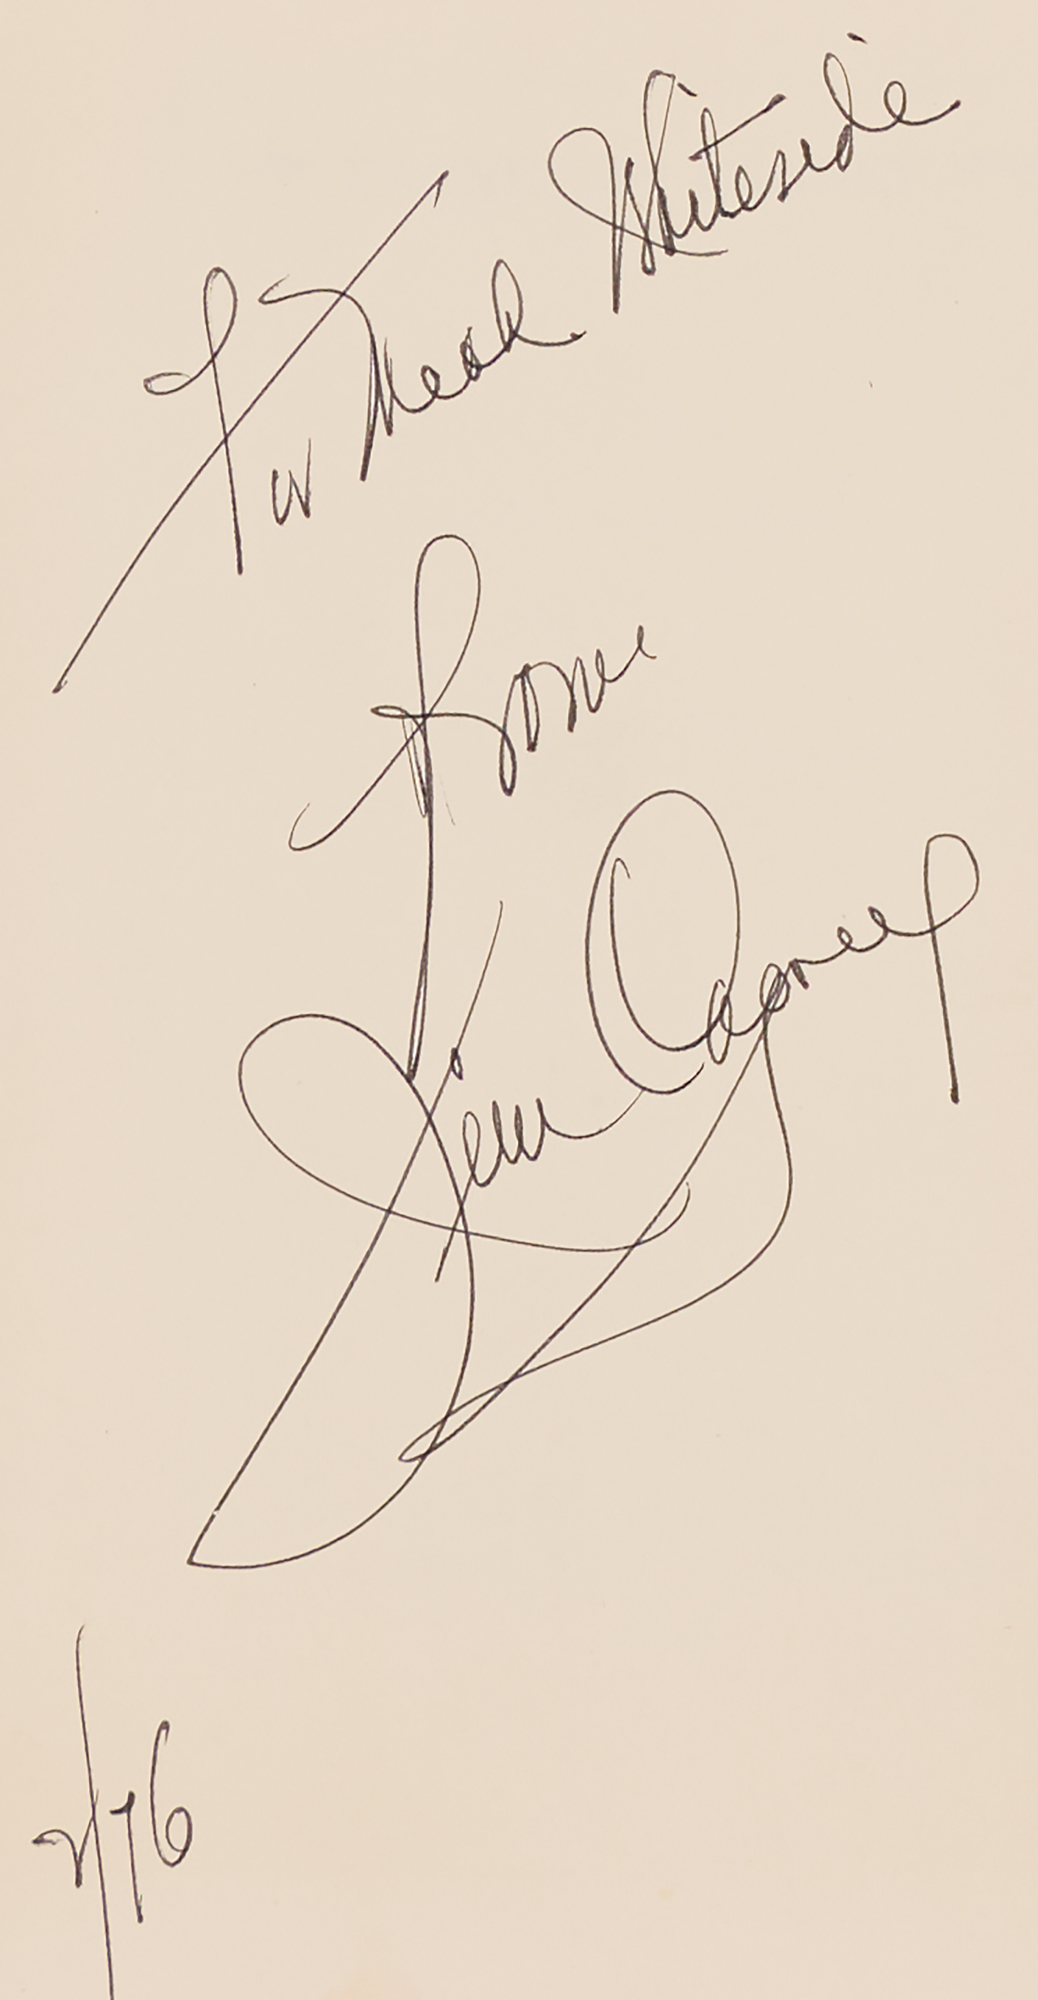 For Mead Whiteside
From
Jim Cagney
2/76